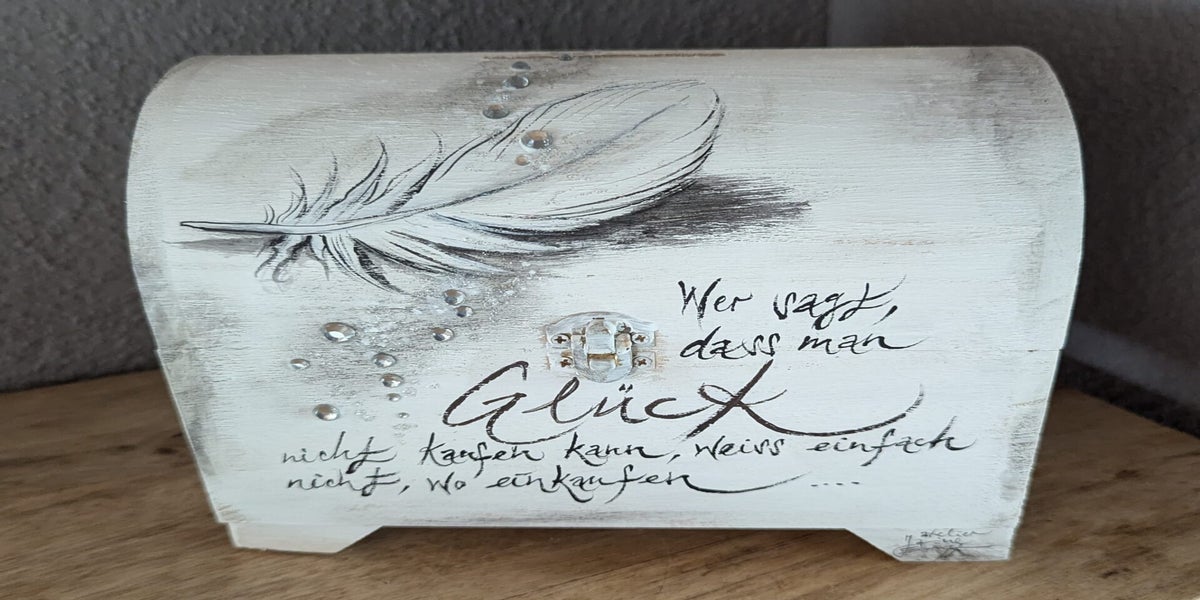 Wer sagt,
dass man
Glück
nicht kaufen kann, weiss einfach
nicht, wo einkaufen ....
atelier